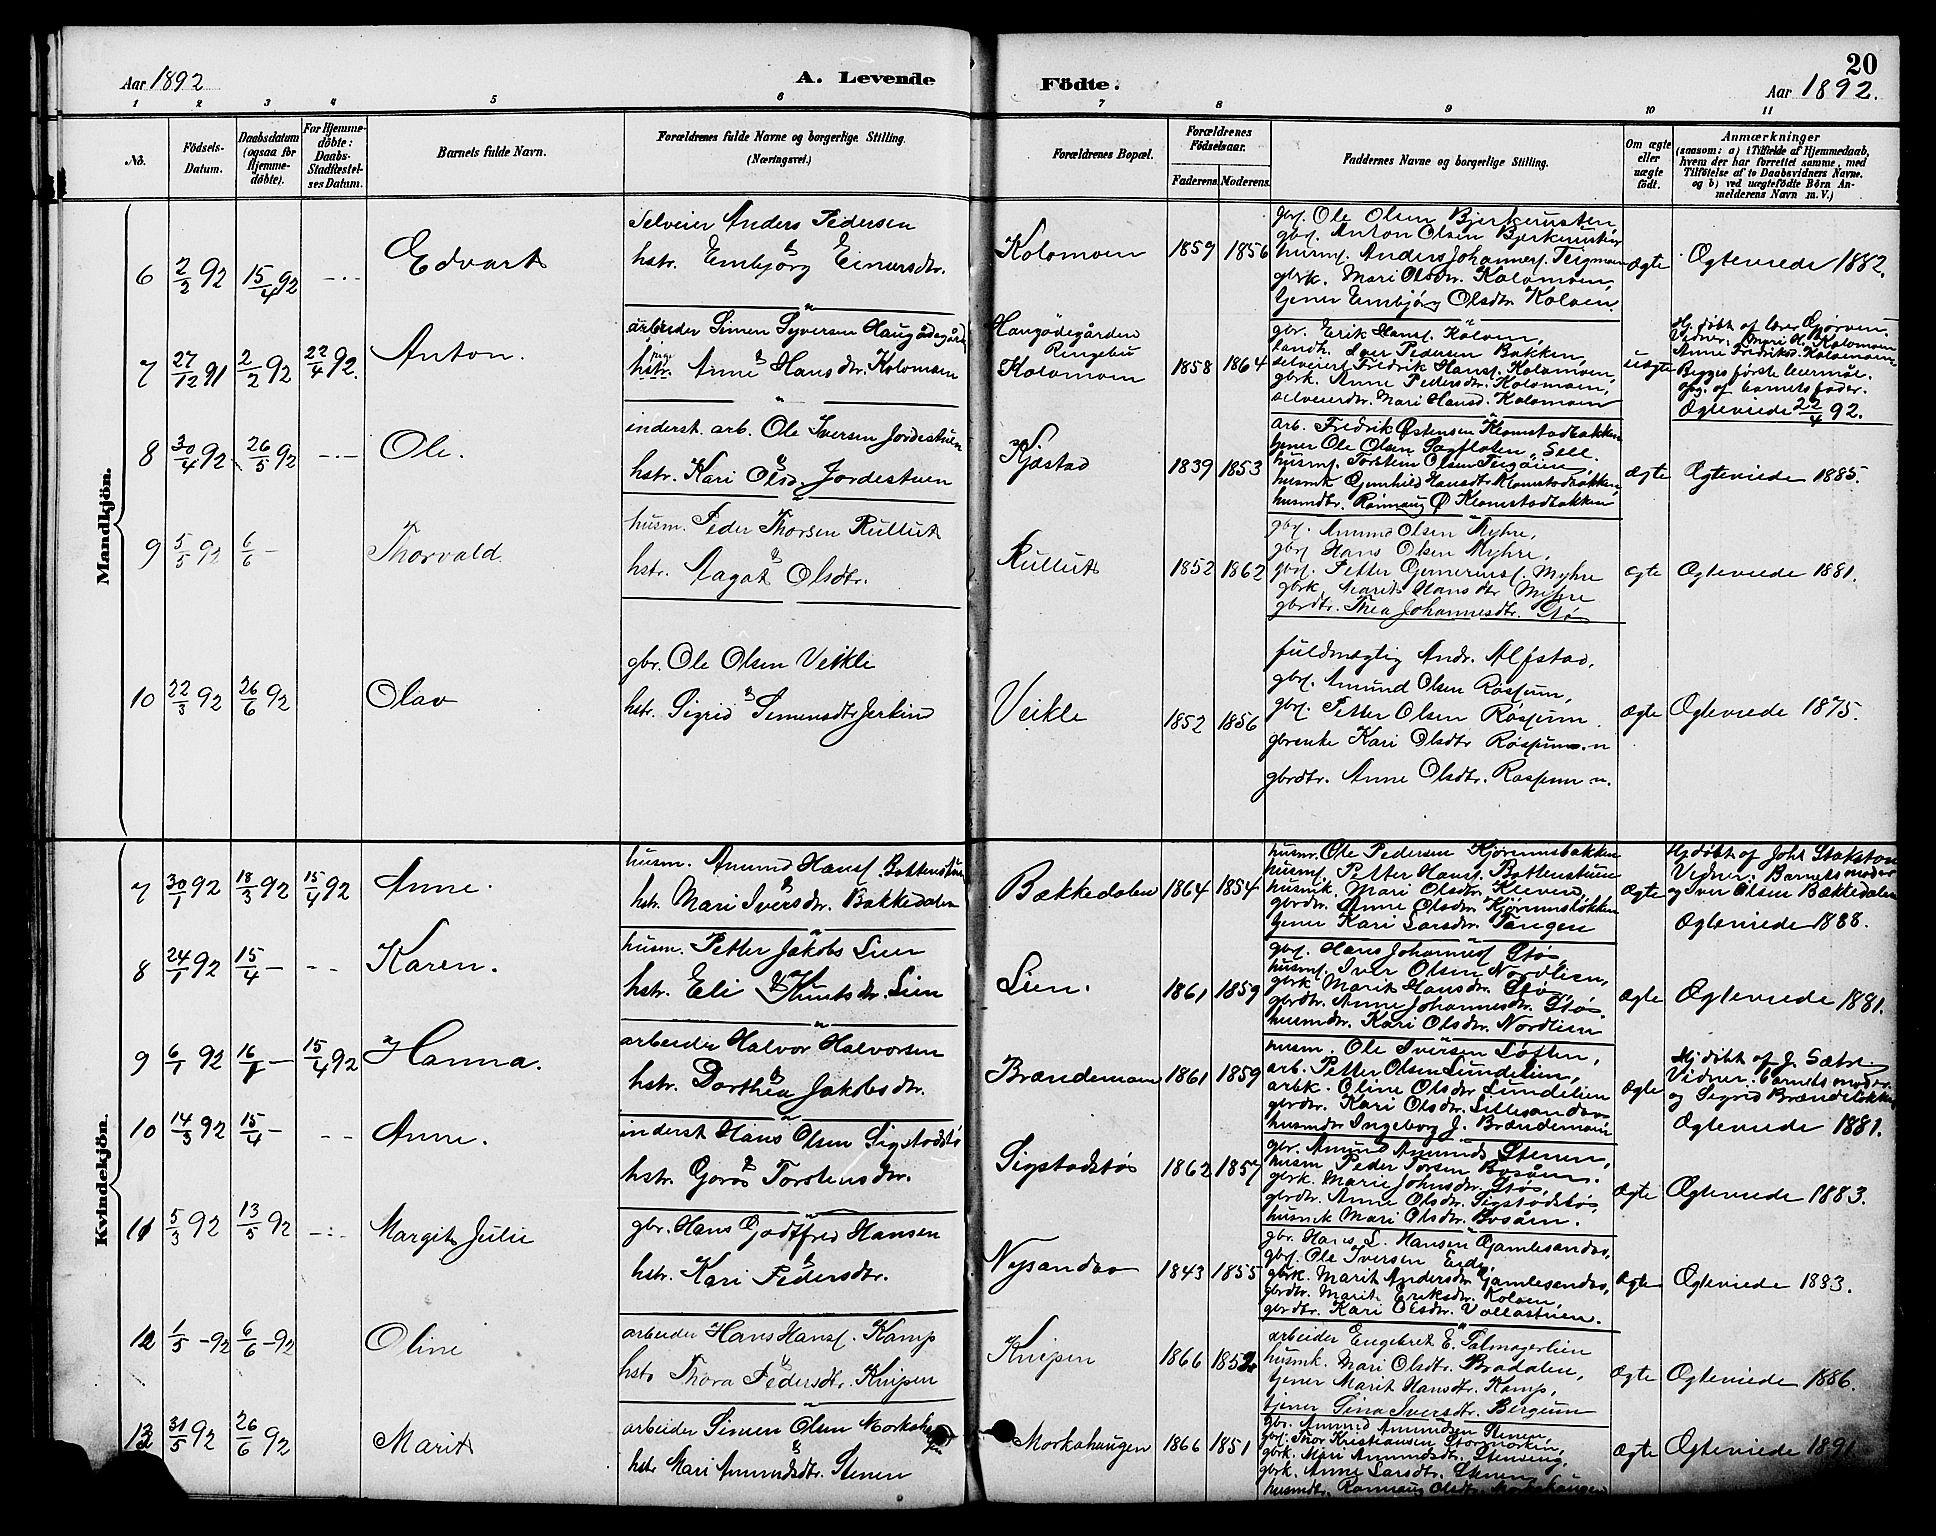 20
Aar 1892
A. Levende
Födte.
Aar 1892.
1 2 3 4 5 6 7 8 9 10 11
No.
Födsels-
Datum.
Daabsdatum
(ogsaa for
Hjemme-
döbte).
For Hjemme-
döbte:
Daabs-
Stadfæstel-
ses Datum.
Barnets fulde Navn.
Forældrenes fulde Navne og borgerlige Stilling.
(Næringsvei.)
Forældrenes Bopæl.
Forældrenes
Födselsaar.
Faderens. Moderens.
Faddernes Navne og borgerlige Stilling.
Om ægte
eller
uægte
födt.
Anmærkninger
(saasom: a) i Tilfælde af Hjemmedaab,
hvem der har forrettet samme, med
Tilföielse af to Daabsvidners Navne.
og b) ved uægtefödte Börn An-
melderens Navn m. V.)
Mandkjön.
6 2/2 92 15/4 92 Edvart
Selveier Anders Pedersen
&
hstr. Embjörg Einarsdtr.
Kolomoen 1859 1856
gbrf. Ole Olsen Bjerkerusten,
gbrf. Anton Olsen Bjerkerusten
husmf. Anders Johannesf. Teigmoen
gbrk. Mari Olsdtr. Kolomoen,
tjener Embjörg Olsdtr Kolven
ægte Ægteviede 1882.
7 27/12 91 2/2 92 22/4 92. Anton.
arbeider Simen Syversen Haugödegård
&
hstr. Anne Hansdtr. Kolomoen
Haugödegården
Ringebu
Kolomoen 1858 1864
gbr. Erik Hansf. Kolven,
landh. Iver Pedersen Bakken,
selveierf. Fredrik Hansf. Kolomoen,
gbrk. Anne Pedersdtr. Kolomoen,
selveierdtr. Mari Hansd. Kolomoen
uægte
Hj. döbt af lærer Gjörven.
Vidner: Mari H. Kolomoen
Anne Fredriksd. Kolomoen
Begges förste leiermål.
opg. af barnets fader.
Ægteviede 22/4 92.
8 30/4 92 26/5 92 Ole.
inderst. arb. Ole Iversen Jordestuen
&
hstr. Kari Olsd. Jordestuen
Kjöstad 1839 1853
arb. Fredrik Östensen Klomstadbakken
tjener Ole Olsen Sagfloten, Sell.
husmf. Torstein Olsen Teigöien,
husmk Gunhild Hansdtr Klomstadbakken,
husmdtr. Rönnaug Ö Klomstadbakken
ægte Ægteviede 1885.
9 5/5 92 6/6 – Thorvald
husm. Peder Thorsen Rullut
&
hstr. Aagot Olsdtr.
Rullut 1852 1862
gbrf. Amund Olsen Myhre,
gbrf Hans Olsen Myhre,
gbrf. Petter Gunerius f. Myhre
gbrk. Marit Hansdtr Myhre
gbrdtr. Thea Johannesdtr. Stö
ægte Ægteviede 1881.
10 22/3 92 26/6 92 Olav
gbr. Ole Olsen Veikle
&
hstr. Sigrid Simensdtr Jerkin
Veikle 1852 1856
fuldmægtig Andr. Alfstad,
gbrf. Amund Olsen Rössum,
gbrf. Petter Olsen Rössum.
gbrenke Kari Olsdtr Rössum
gbrdtr. Anne Olsdtr. Rössum
ægte Ægteviede 1875.
Kvindekjön.
7 30/1 92 18/3 92 15/4 92 Anne.
husm. Amund Hansf. Bottenstuen
&
hstr. Mari Iversdtr. Bakkedalen
Bækkedalen 1864 1854
husmf. Ole Pedersen Kjörumsbakken
husmf. Petter Hansf. Bottenstuen
husmk. Mari Olsdtr. Kleven,
gbrdtr. Anne Olsdtr. Kjörumsløkken
tjener Kari Larsdtr. Tangen
ægte
Hj. döbt af Joh. Stokstad
Vidner: Barnets moder
og Iver Olsen Bækkedalen
Ægteviede 1888.
8 24/1 92 15/4 – Karen.
husm. Petter Jakobs Lien
&
hstr. Eli Knutsdtr. Lien
Lien. 1861 1859
gbrf. Hans Johannesf Stös,
husmf. Iver Olsen Nordlien,
gbrk. Marit Hansdtr. Stös,
gbrdtr. Anne Johannesdtr. Stös,
husmdtr. Kari Olsdtr. Nordlien
ægte Ægteviede 1881.
9 6/1 92 16/1 – 15/4 92 Hanna.
arbeider Halvor Halvorsen
&
hstr. Dorthea Jakobsdtr.
Brændemoen 1861 1859
husm. Ole Iversen Loften,
arb. Petter Olsen Lundelien,
arbk. Oline Olsdtr Lundelien
gbrdtr. Kari Olsdtr. Lillesandvo
husmdtr Ingeborg J. Brændemoen
ægte
Hj. döbt af J. Sætre.
Vidner: barnets moder
og Sigrid Brændeløkken
Ægteviede 1881.
10 14/3 92 15/4 – Anne.
inderst Hans Olsen Sigstadstö
&
hstr. Goro Torstensdtr.
Sigstadstö 1862 1857
gbr. Amund Amunds Stenen,
husm Peder Torsen Bosåen.
gbrk. Marie Johnsdtr. Stös,
gbrdtr. Anne Olsdtr. Sigstadstö
husmk Mari Olsdtr. Bosåen.
ægte Ægteviede 1883.
11 5/3 92 13/5 92 Margit Julie
gbr. Hans Godtfred Hansen
&
hstr. Kari Pedersdtr.
Nysandvo 1843 1855
gbr. Hans L. Hansen Gamlesandvo,
gbrf. Ole Iversen Eide,
gbrk. Marit Andersdtr Gamlesandvo,
gbrdtr. Marit Eriksdtr. Kolven,
gbrdtr. Kari Olsdtr. Vollastuen.
ægte Ægteviede 1883.
12 1/5 – 92 6/6 – 92 Oline
arbeider Hans Hansf. Kamp
&
hstr Thora Pedersdtr. Knipen
Knipen 1866 1852
arbeider Engebret E. Salmagerlien
husmk. Mari Olsdtr. Bradalen,
tjener Marit Hansdtr. Kamp,
tjener Sina Iversdtr. Bergum
ægte Ægteviede 1886.
13 31/5 92 26/6 92 Marit
arbeider Simen Olsen Morkahaugen
&
hstr Mari Amundsdtr. Stenen
Morkahaugen 1866 1851
gbr. Amund Amundsen Stenen,
gbrf. Thor Kristiansen Stormorken,
gbrk. Mari Amundsdtr. Stenseng,
gbrk. Anne Larsdtr. Stenen
husmdtr. Rönnaug Olsdtr. Morkahaugen
ægte Ægteviede 1891